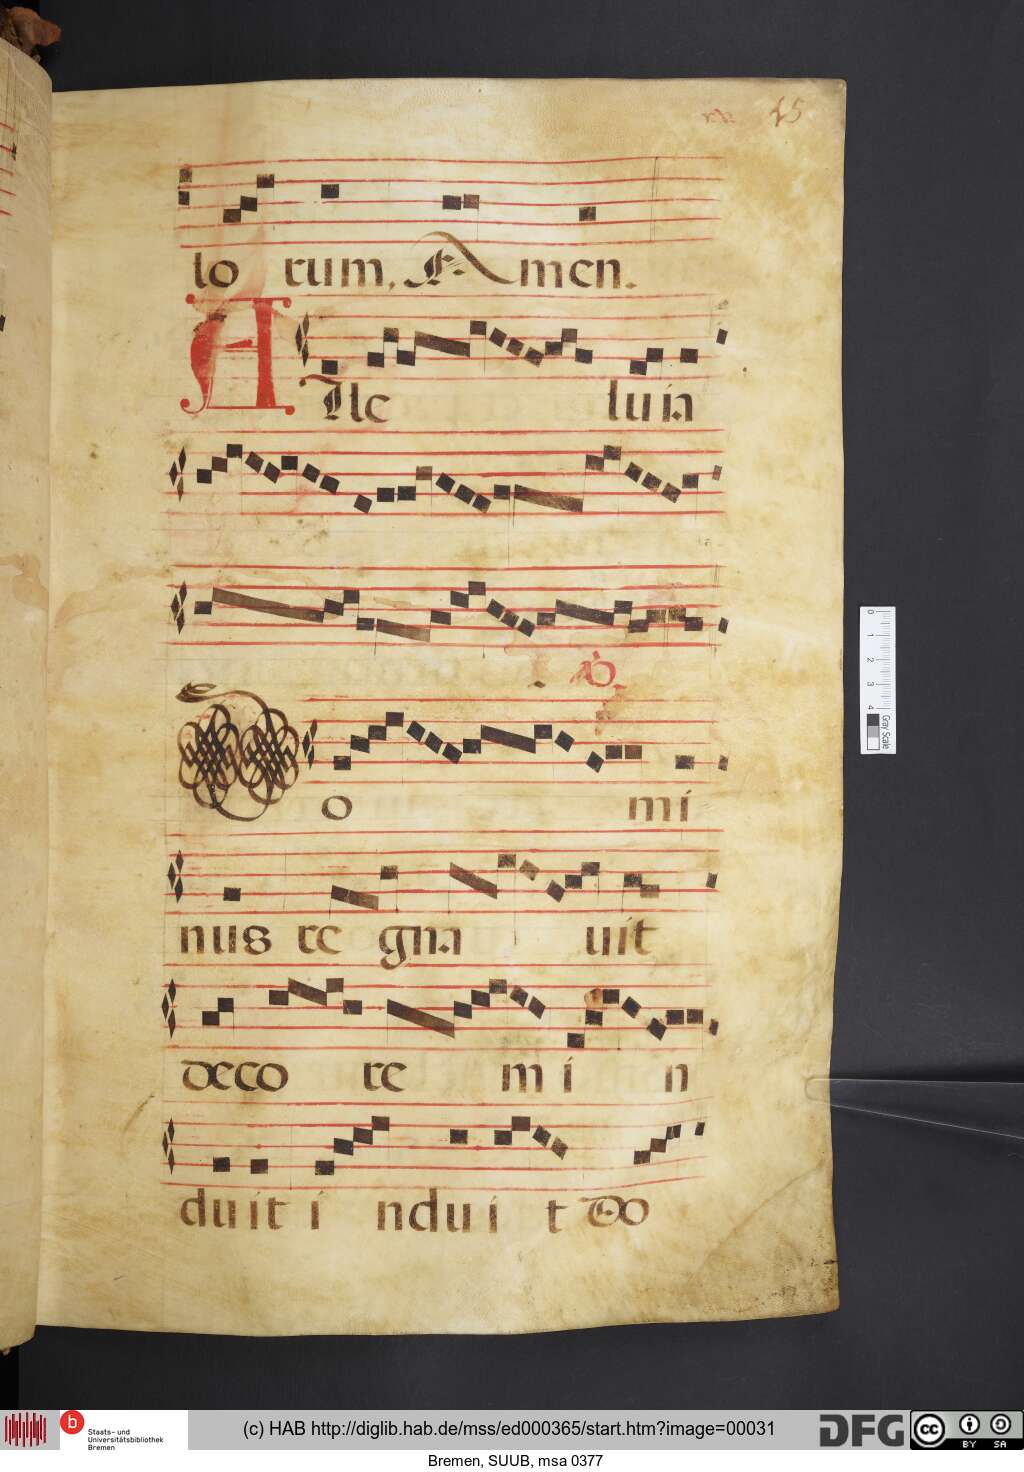 15
lo rum. Amen.
Alle luia
Do mi
nus re gna uit
deco re mi n
duit i ndui t Do
0 1 2 3 4
Gray Scale
b
Staats- und
Universitätsbibliothek
Bremen
(c) HAB http://diglib.hab.de/mss/ed000365/start.htm?image=00031
DFG
cc BY SA
Bremen, SUUB, msa 0377